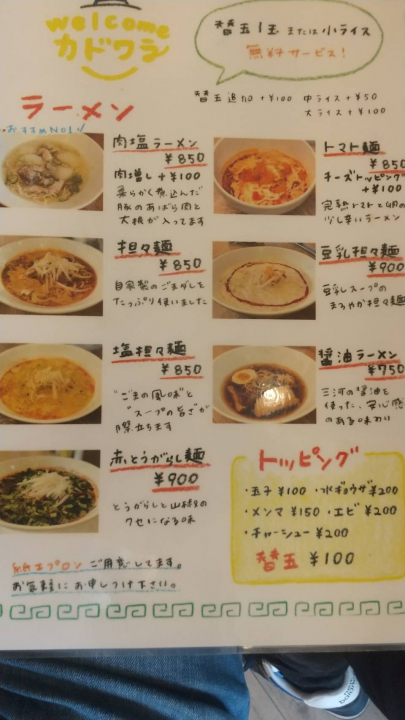 welcome
カドワラ
替玉1玉 または 小ライス
無料サービス!
替玉追加+¥100 中ライス+¥50
大ライス+¥100
ラーメン
おすすめNO1
肉塩ラーメン
¥850
肉増し+¥100
柔らかく煮込んだ
豚のあばら肉と
大根が入ってます
トマト麺
¥850
チーズトッピング
+¥100
完熟トマトと卵の
少し辛いラーメン
担々麺
¥850
自家製のごまダレを
たっぷり使いました
豆乳担々麺
¥900
豆乳スープの
まろやか担々麺
塩担々麺
¥850
"ごまの風味"と
"スープの旨さ"が
際立ちます
醤油ラーメン
¥750
三河の醤油を
使った、安心感
のある味わい
赤とうがらし麺
¥900
とうがらしと山椒の
クセになる味
トッピング
・玉子¥100 ・水ギョウザ¥200
・メンマ¥150 ・エビ ¥200
・チャーシュー¥200
替玉 ¥100
紙エプロンご用意してます。
お気軽にお申しつけ下さい。